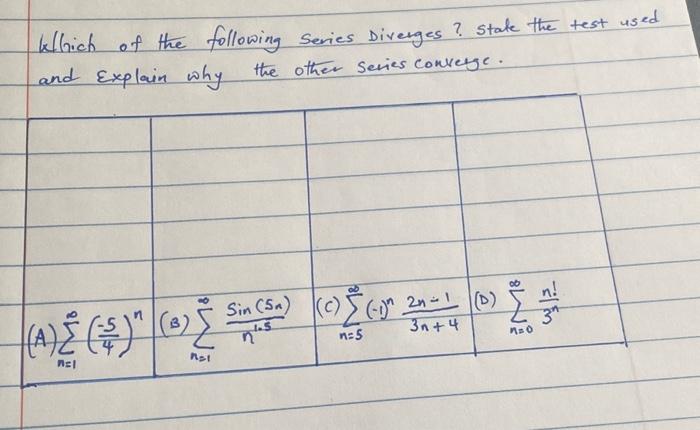 Which of the following Series Diverges ? State the test used
and Explain why the other series converge.
(A) ∑_{n=1}^{∞} (-5/4)^n (B) ∑_{n=1}^{∞} Sin(5n)/n^{1.5} (C) ∑_{n=5}^{∞} (-1)^n (2n-1)/(3n+4) (D) ∑_{n=0}^{∞} n!/3^n